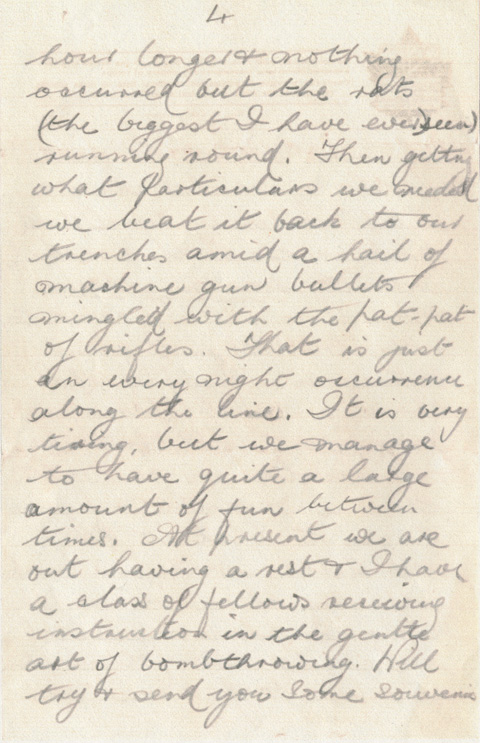 4
hour longer & nothing
occurred but the rats
(the biggest I have ever seen)
running round. Then getting
what particulars we needed
we beat it back to our
trenches amid a hail of
machine gun bullets
mingled with the pat-pat
of rifles. That is just
an every night occurrence
along the line. It is very
tiring, but we manage
to have quite a large
amount of fun between
times. At present we are
out having a rest & I have
a class of fellows receiving
instruction in the gentle
art of bombthrowing. Will
try & send you some souvenirs